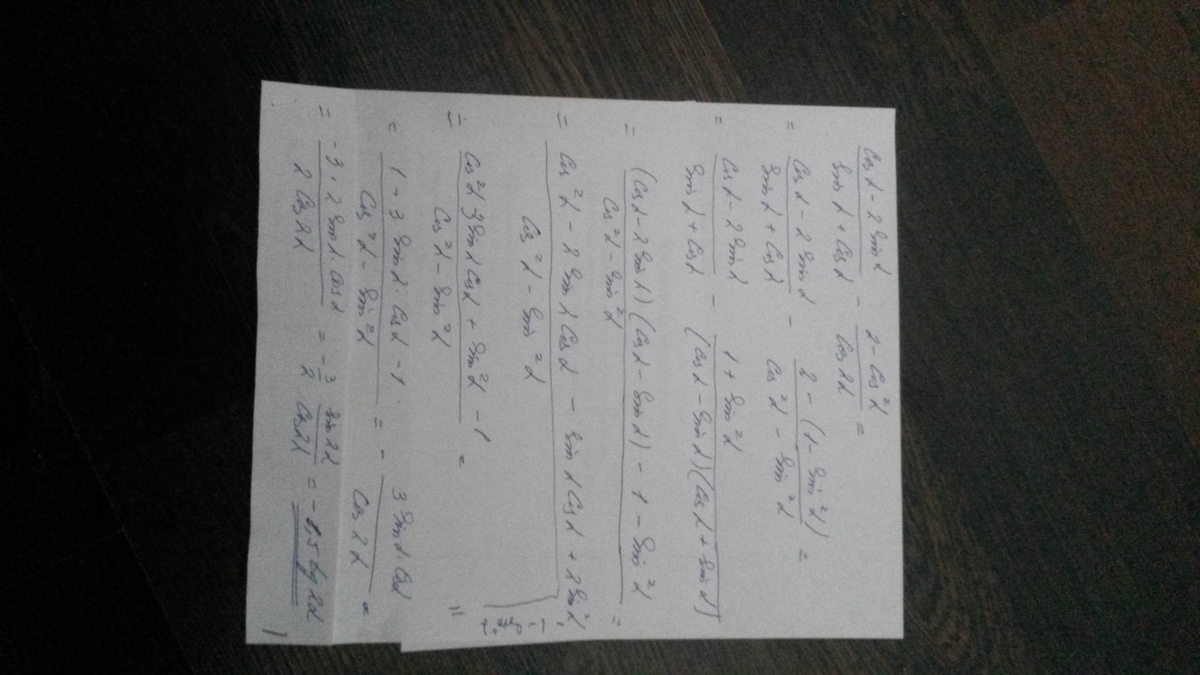 (cos α - 2 sin α)/(sin α + cos α) - (2 - cos²α)/(cos 2α) =
= (cos α - 2 sin α)/(sin α + cos α) - (2 - (1 - sin²α))/(cos²α - sin²α) =
= (cos α - 2 sin α)/(sin α + cos α) - (1 + sin²α)/((cos α - sin α)(cos α + sin α))
= ((cos α - 2 sin α)(cos α - sin α) - 1 - sin²α)/(cos²α - sin²α) =
= (cos²α - 2 sin α cos α - sin α cos α + 2 sin²α)/(cos²α - sin²α) =
= (cos²α 3 sin α cos α + sin²α - 1)/(cos²α - sin²α) =
= (1 - 3 sin α · cos α - 1)/(cos²α - sin²α) = - (3 sin α · cos α)/(cos 2α) =
= (-3 · 2 sin α cos α)/(2 cos 2α) = - 3/2 sin 2α/cos 2α = - 1,5 tg 2α